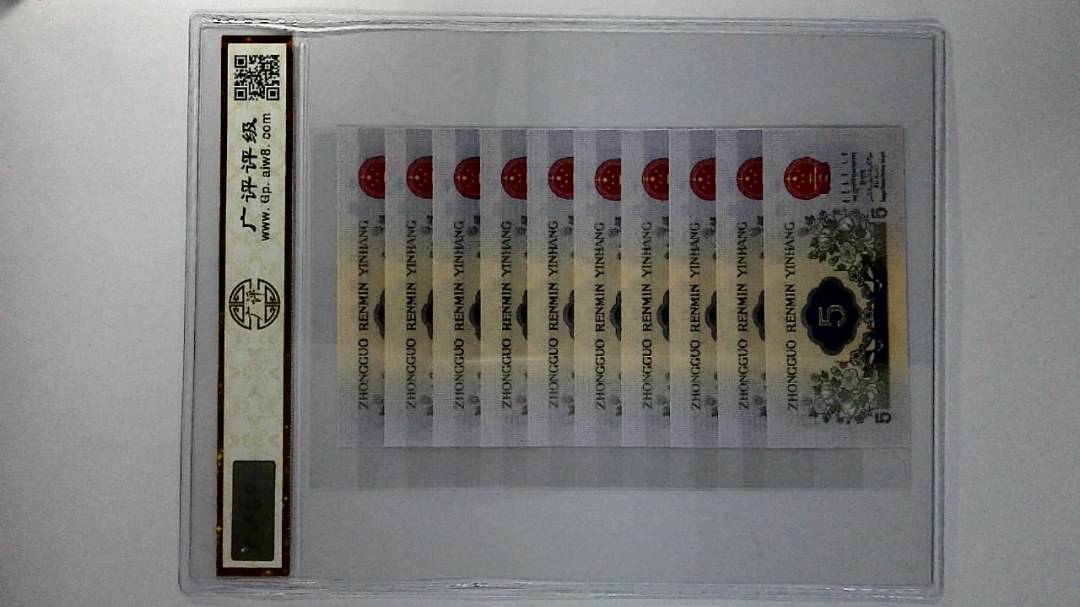 广评评级
www.Gp.aiw8.com
广评
ZHONGGUO RENMIN YINHANG
ZHONGGUO RENMIN YINHANG
ZHONGGUO RENMIN YINHANG
ZHONGGUO RENMIN YINHANG
ZHONGGUO RENMIN YINHANG
ZHONGGUO RENMIN YINHANG
ZHONGGUO RENMIN YINHANG
ZHONGGUO RENMIN YINHANG
ZHONGGUO RENMIN YINHANG
ZHONGGUO RENMIN YINHANG
5
5 5